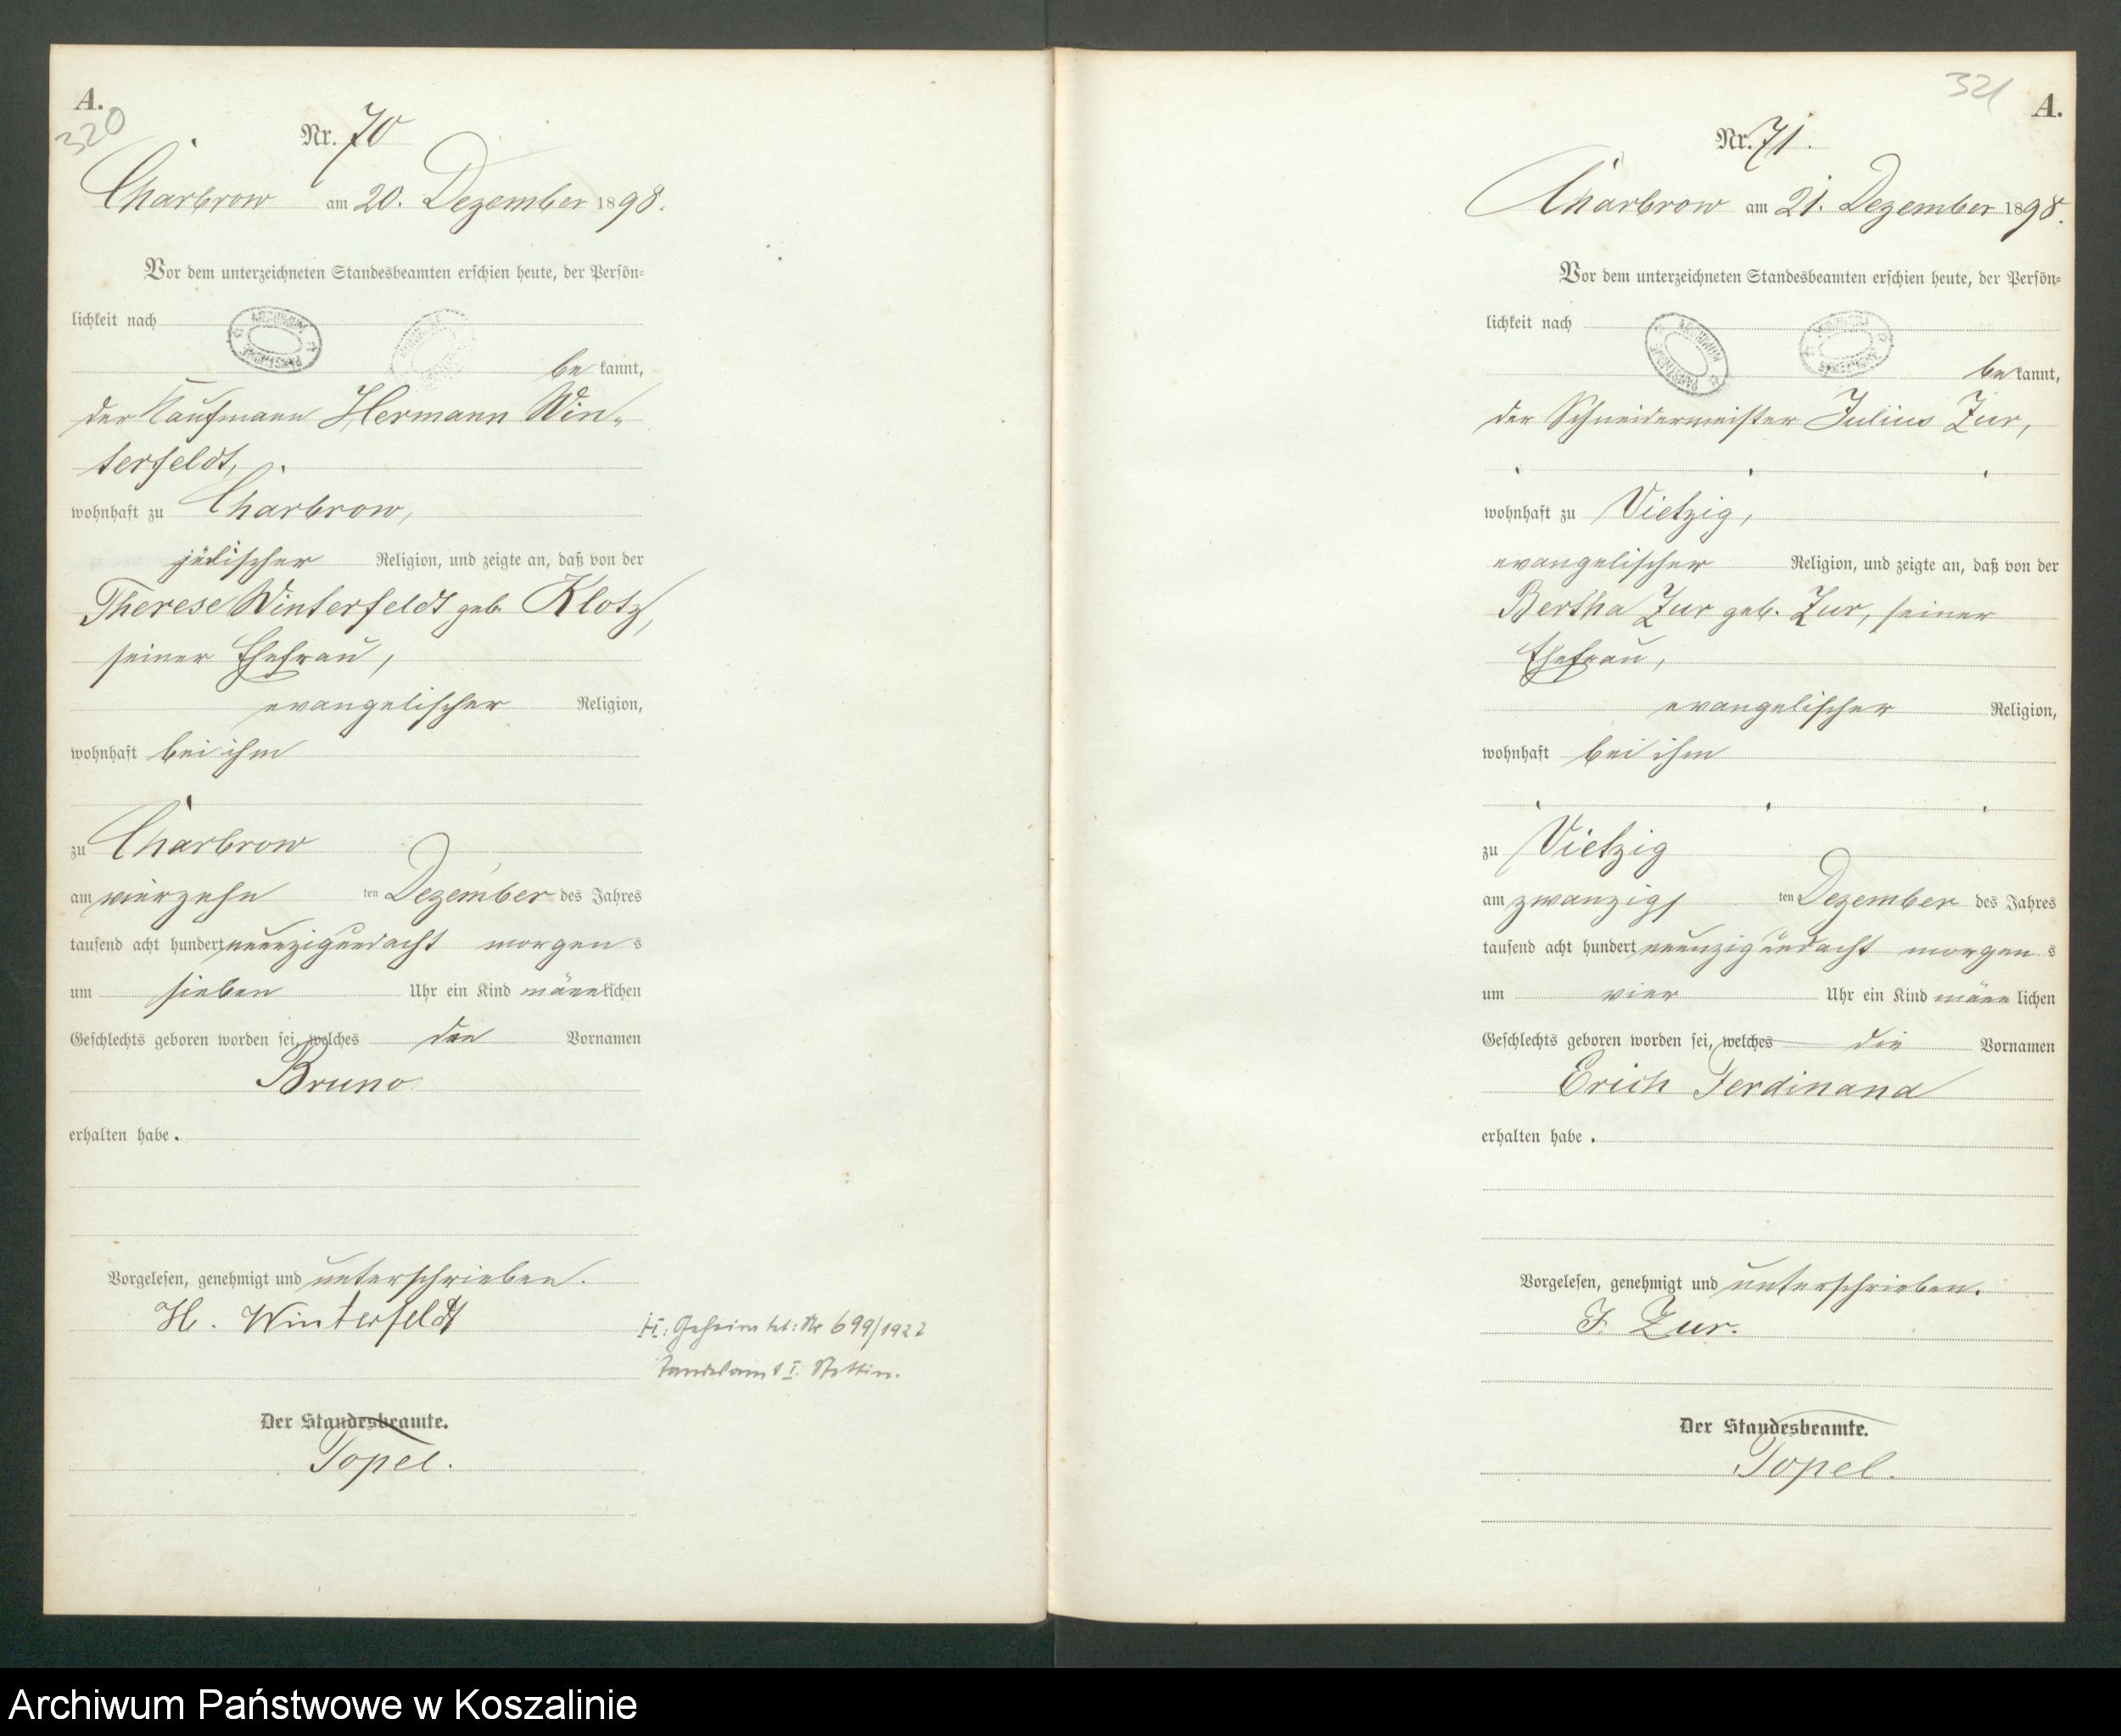 A.
320
Nr. 70
Charbrow am 20. Dezember 1898.
Vor dem unterzeichneten Standesbeamten erschien heute, der Persön-
lichkeit nach
bekannt,
der Kaufmann Hermann Win-
terfeldt,
wohnhaft zu Charbrow,
jüdischer Religion, und zeigte an, daß von der
Therese Winterfeldt geb. Klotz,
seiner Ehefrau,
evangelischer Religion,
wohnhaft bei ihm
zu Charbrow
am vierzehn ten Dezember des Jahres
tausend acht hundert neunzigundacht morgens
um sieben Uhr ein Kind männlichen
Geschlechts geboren worden sei, welches den Vornamen
Bruno
erhalten habe.
Vorgelesen, genehmigt und unterschrieben.
H. Winterfeldt
Nr 699/1922
Standesamt I. Stettin.
Der Standesbeamte.
Topel.
321
A.
Nr. 71.
Charbrow am 21. Dezember 1898.
Vor dem unterzeichneten Standesbeamten erschien heute, der Persön-
lichkeit nach
bekannt,
der Schneidermeister Julius Zur,
wohnhaft zu Vietzig,
evangelischer Religion, und zeigte an, daß von der
Bertha Zur geb. Zur, seiner
Ehefrau,
evangelischer Religion,
wohnhaft bei ihm
zu Vietzig
am zwanzigs ten Dezember des Jahres
tausend acht hundert neunzigundacht morgens
um vier Uhr ein Kind männlichen
Geschlechts geboren worden sei, welches die Vornamen
Erich Ferdinand
erhalten habe.
Vorgelesen, genehmigt und unterschrieben.
J. Zur.
Der Standesbeamte.
Topel.
Archiwum Państwowe w Koszalinie